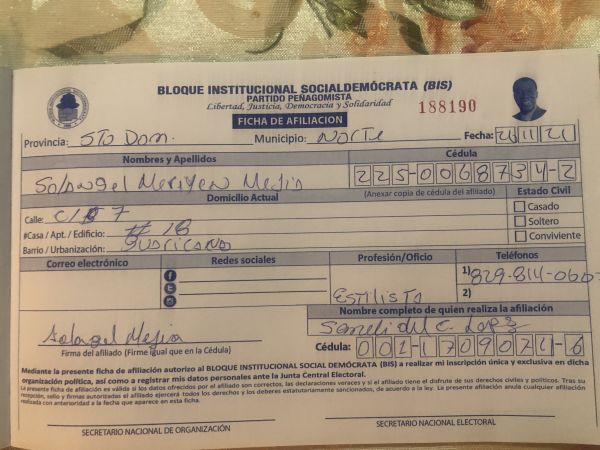 BLOQUE INSTITUCIONAL SOCIALDEMÓCRATA (BIS)
PARTIDO PEÑAGOMISTA
Libertad, Justicia, Democracia y Solidaridad
188190
FICHA DE AFILIACION
Provincia: Sto Dom. Municipio: Norte Fecha: 21/11/21
Nombres y Apellidos Cédula
Solangel Meriyen Mejia 225-0068734-2
Domicilio Actual (Anexar copia de cédula del afiliado) Estado Civil
Calle: C/ 7 Casado
#Casa / Apt. / Edificio: # 16 Soltero
Barrio / Urbanización: Guaricano Conviviente
Correo electrónico Redes sociales Profesión/Oficio Teléfonos
1) 829-814-060
2)
Estilista
Nombre completo de quien realiza la afiliación
del C. Lopez
Solangel Mejia
Firma del afiliado (Firme igual que en la Cédula) Cédula: 001-1709071-6
Mediante la presente ficha de afiliación autorizo al BLOQUE INSTITUCIONAL SOCIAL DEMÓCRATA (BIS) a realizar mi inscripción única y exclusiva en dicha
organización política, así como a registrar mis datos personales ante la Junta Central Electoral.
La presente ficha de afiliación es válida si los datos ofrecidos por el afiliado son correctos, las declaraciones veraces y si el afiliado tiene el disfrute de sus derechos civiles y políticos. Tras su
recepción, sello y firmas autorizadas el afiliado ejercerá todos los derechos y los deberes estatutariamente sancionados, de acuerdo a la ley. La presente afiliación anula cualquier afiliación
realizada con anterioridad a la fecha que aparece en esta ficha.
SECRETARIO NACIONAL DE ORGANIZACIÓN SECRETARIO NACIONAL ELECTORAL